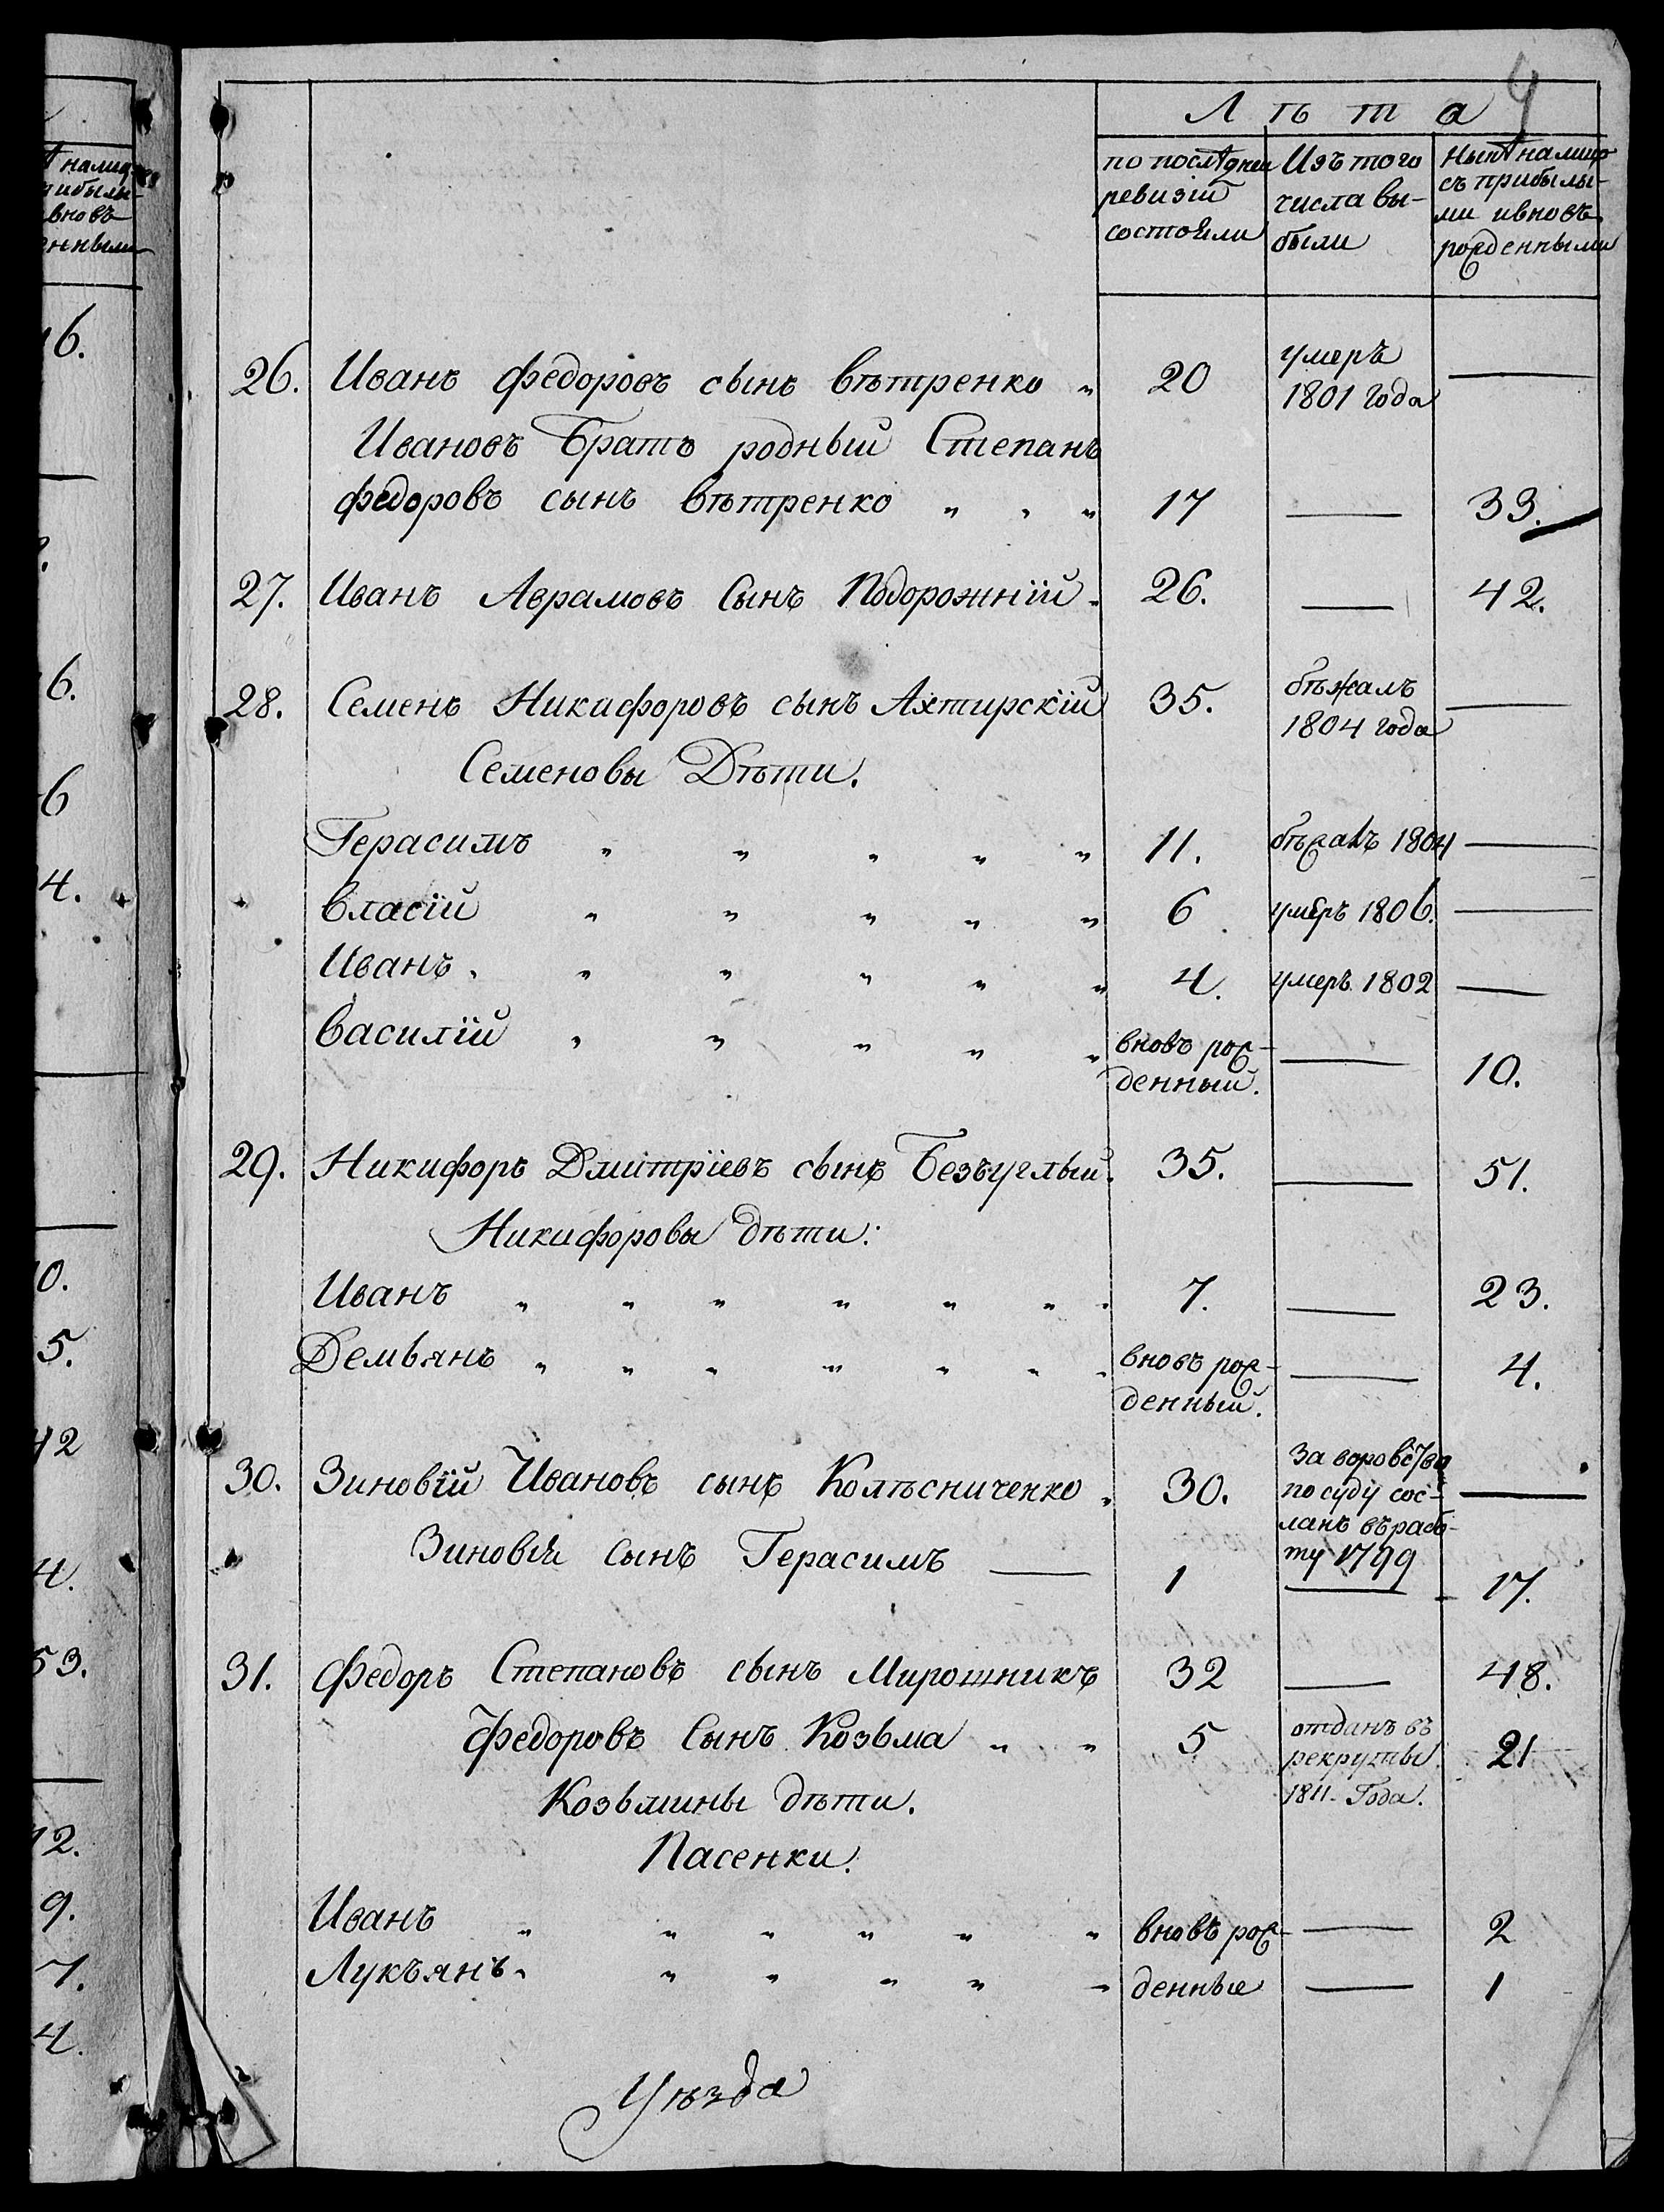 9
Лѣта
по послѣдней
ревизіи
состояли
Изъ того
числа вы-
были
Нынѣ налицо
съ прибылы-
ми ивновь
рожденными
26. Иванъ Федоровъ сынъ Вѣтренко „ 20 умеръ
1801 года —
Ивановъ Братъ родный Степанъ
Федоровъ сынъ Вѣтренко „ „ „ 17 — 33.
27. Иванъ Аврамовъ Сынъ Подорожній „ 26. — 42.
28. Семенъ Никифоровъ сынъ Ахтирскій 35. бѣжалъ
1804 года —
Семеновы Дѣти.
Герасимъ „ „ „ „ „ 11. бѣжалъ 1804 —
Власій „ „ „ „ „ 6 умеръ 1806. —
Иванъ „ „ „ „ „ „ 4. умеръ 1802 —
Василій „ „ „ „ „ вновь рож-
денный. — 10.
29. Никифоръ Дмитріевъ сынъ Безъуглый. 35. — 51.
Никифоровы дѣти:
Иванъ „ „ „ „ „ „ „ 7. — 23.
Демьянъ „ „ „ „ „ „ „ вновь рож-
денный. — 4.
30. Зиновій Ивановъ сынъ Колѣсниченко „ 30. За воровство
по суду сос-
ланъ въ рабо-
ту 1799 —
Зиновія Сынъ Герасимъ — 1 — 17.
31. Федоръ Степановъ сынъ Мирошникъ 32 — 48.
Федоровъ Сынъ Козьма „ „ 5 отданъ въ
рекруты
1811. Года. 21
Козьмины дѣти.
Пасенки.
Иванъ „ „ „ „ „ „ вновь рож- — 2
Лукъянъ „ „ „ „ „ „ денные — 1
Уѣзда
налиц
рибылы-
вновь
енными
16.
6.
6
4.
0.
5.
42
4.
53.
12.
9.
7.
4.